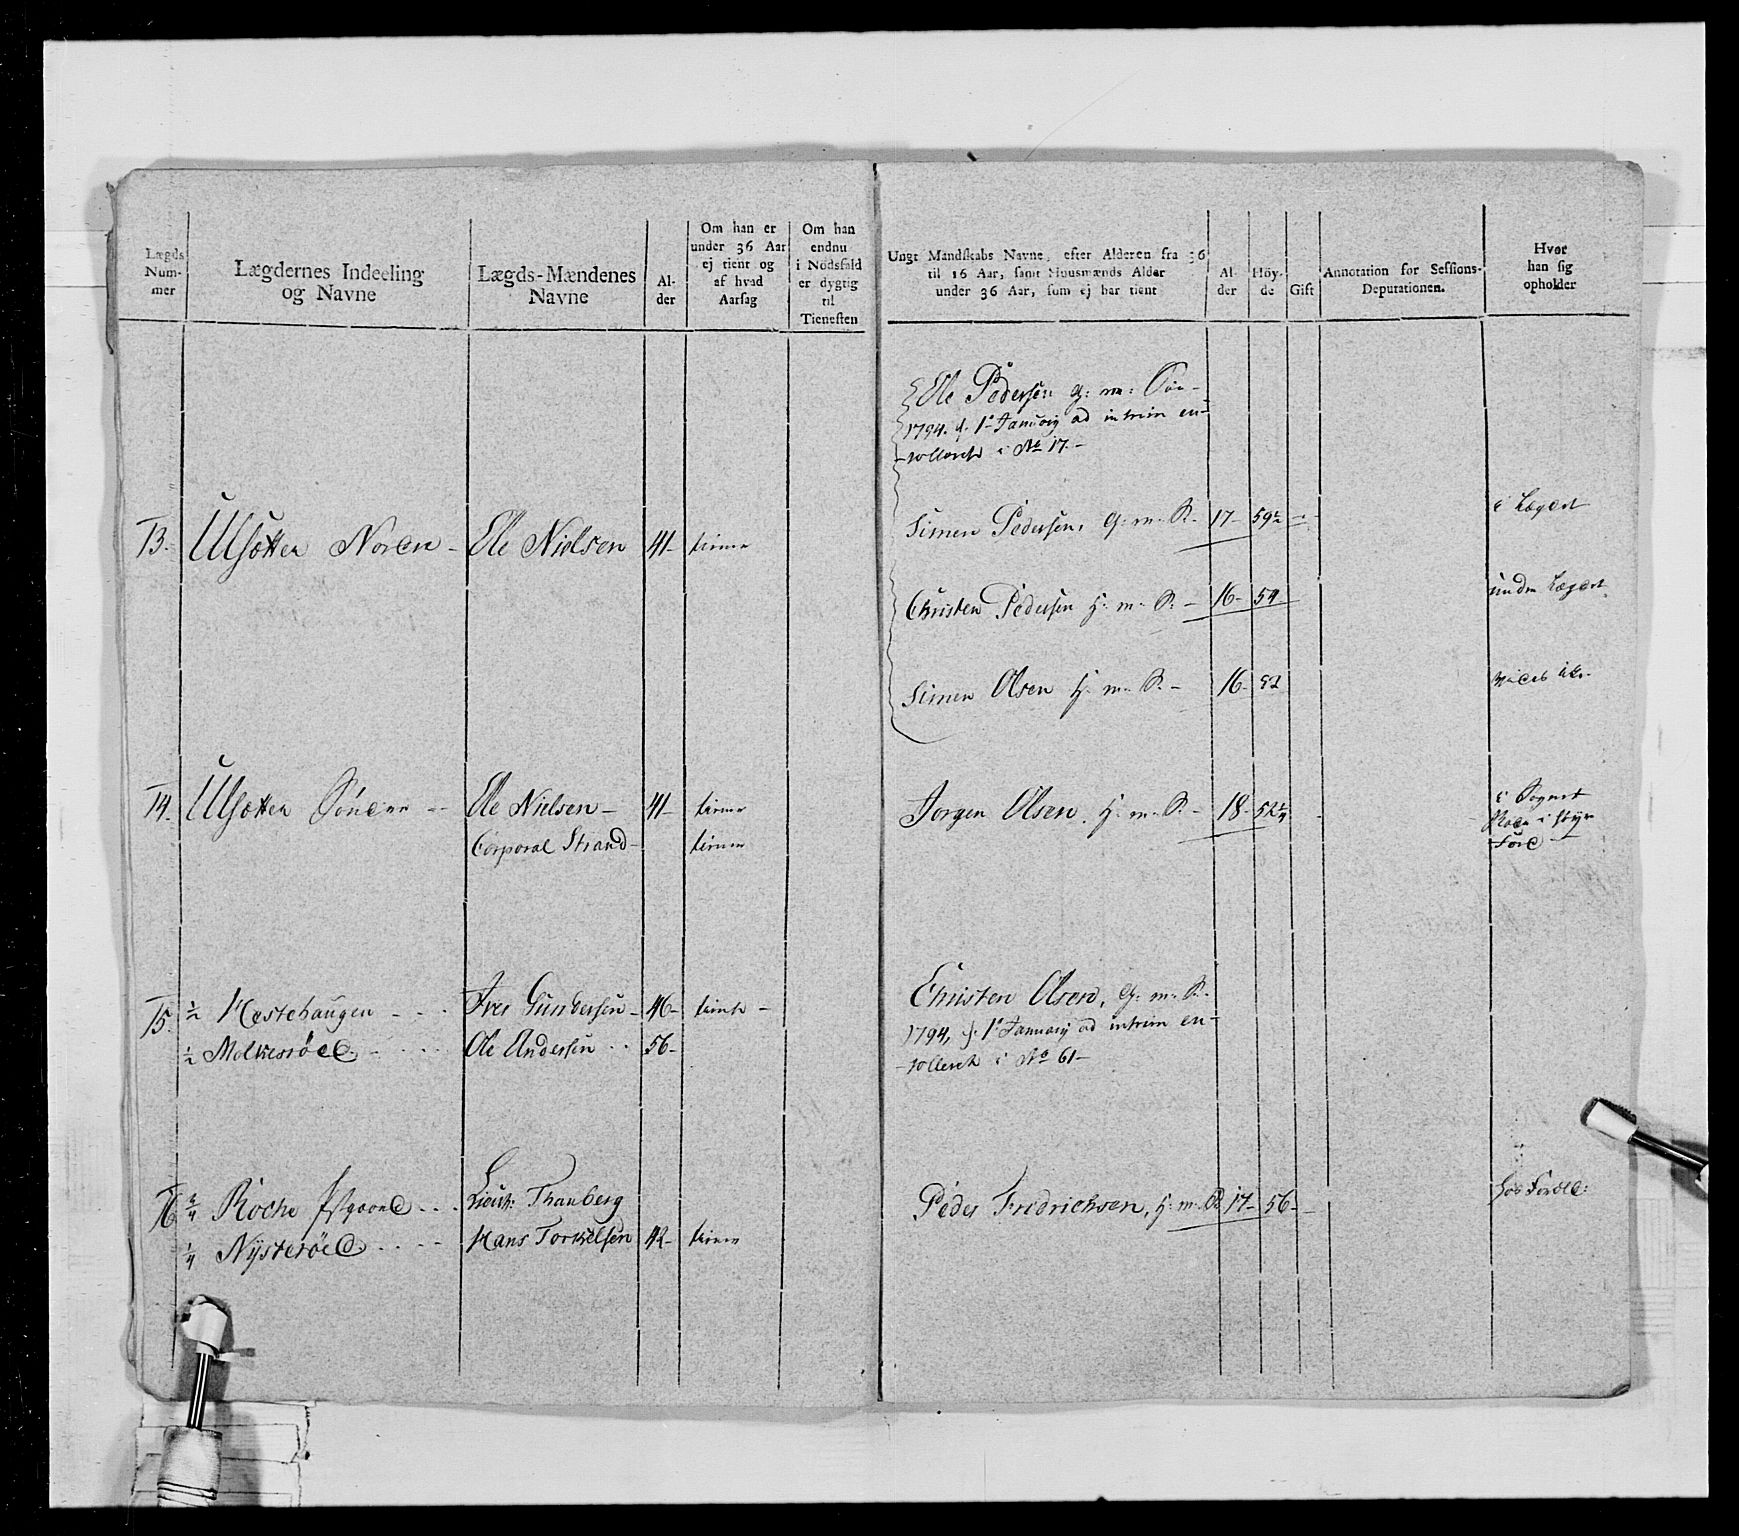 Lægds Nummer
Lægdernes Indeeling og Navne
Lægds-Mændenes Navne
Alder
Om han er under 36 Aar ej tient og af hvad Aarsag
Om han endnu i Nödsfald er dygtig til Tienesten
Ungt Mandskabs Navne, efter Alderen fra 36 til 16 Aar, samt Huusmænds Alder under 36 Aar, som ej har tient
Alder
Höyde
Gift
Annotation for Sessions-Deputationen.
Hvor han sig opholder
Ole Pedersen G: m: Søn
1794. d. 1. Januarij ad intrim en-
rolleret i No 17.
13. Ulsætter Noren - Ole Nielsen 41 - tiener
Simen Pedersen, G: m: S. 17 - 59½ i Lægdet
Christen Pedersen H: m: S: - 16 - 54 under Lægdet
Simen Olsen H: m: S. - 16 - 52
14. Ulsætter Sönder - Ole Nielsen - 41 - tiener
Jorgen Olsen. H: m: S. - 18 - 52¼ i Sognet
Corporal Strand - tiener
15. ½ Hestehaugen - Iver Gundersen - 46 - tient -
½ Melkesröed - Ole Andersen 56 -
Christen Olsen, G: m: S.
1794, d. 1. Januarij ad intrim en-
rolleret i No 61 -
16 ¾ Roche Østgaard - Lieut: Thanberg
Peder Fredrichsen, H: m: S. 17 - 56 -
¼ Nysteröed - Hans Torkelsen 42 - tiener